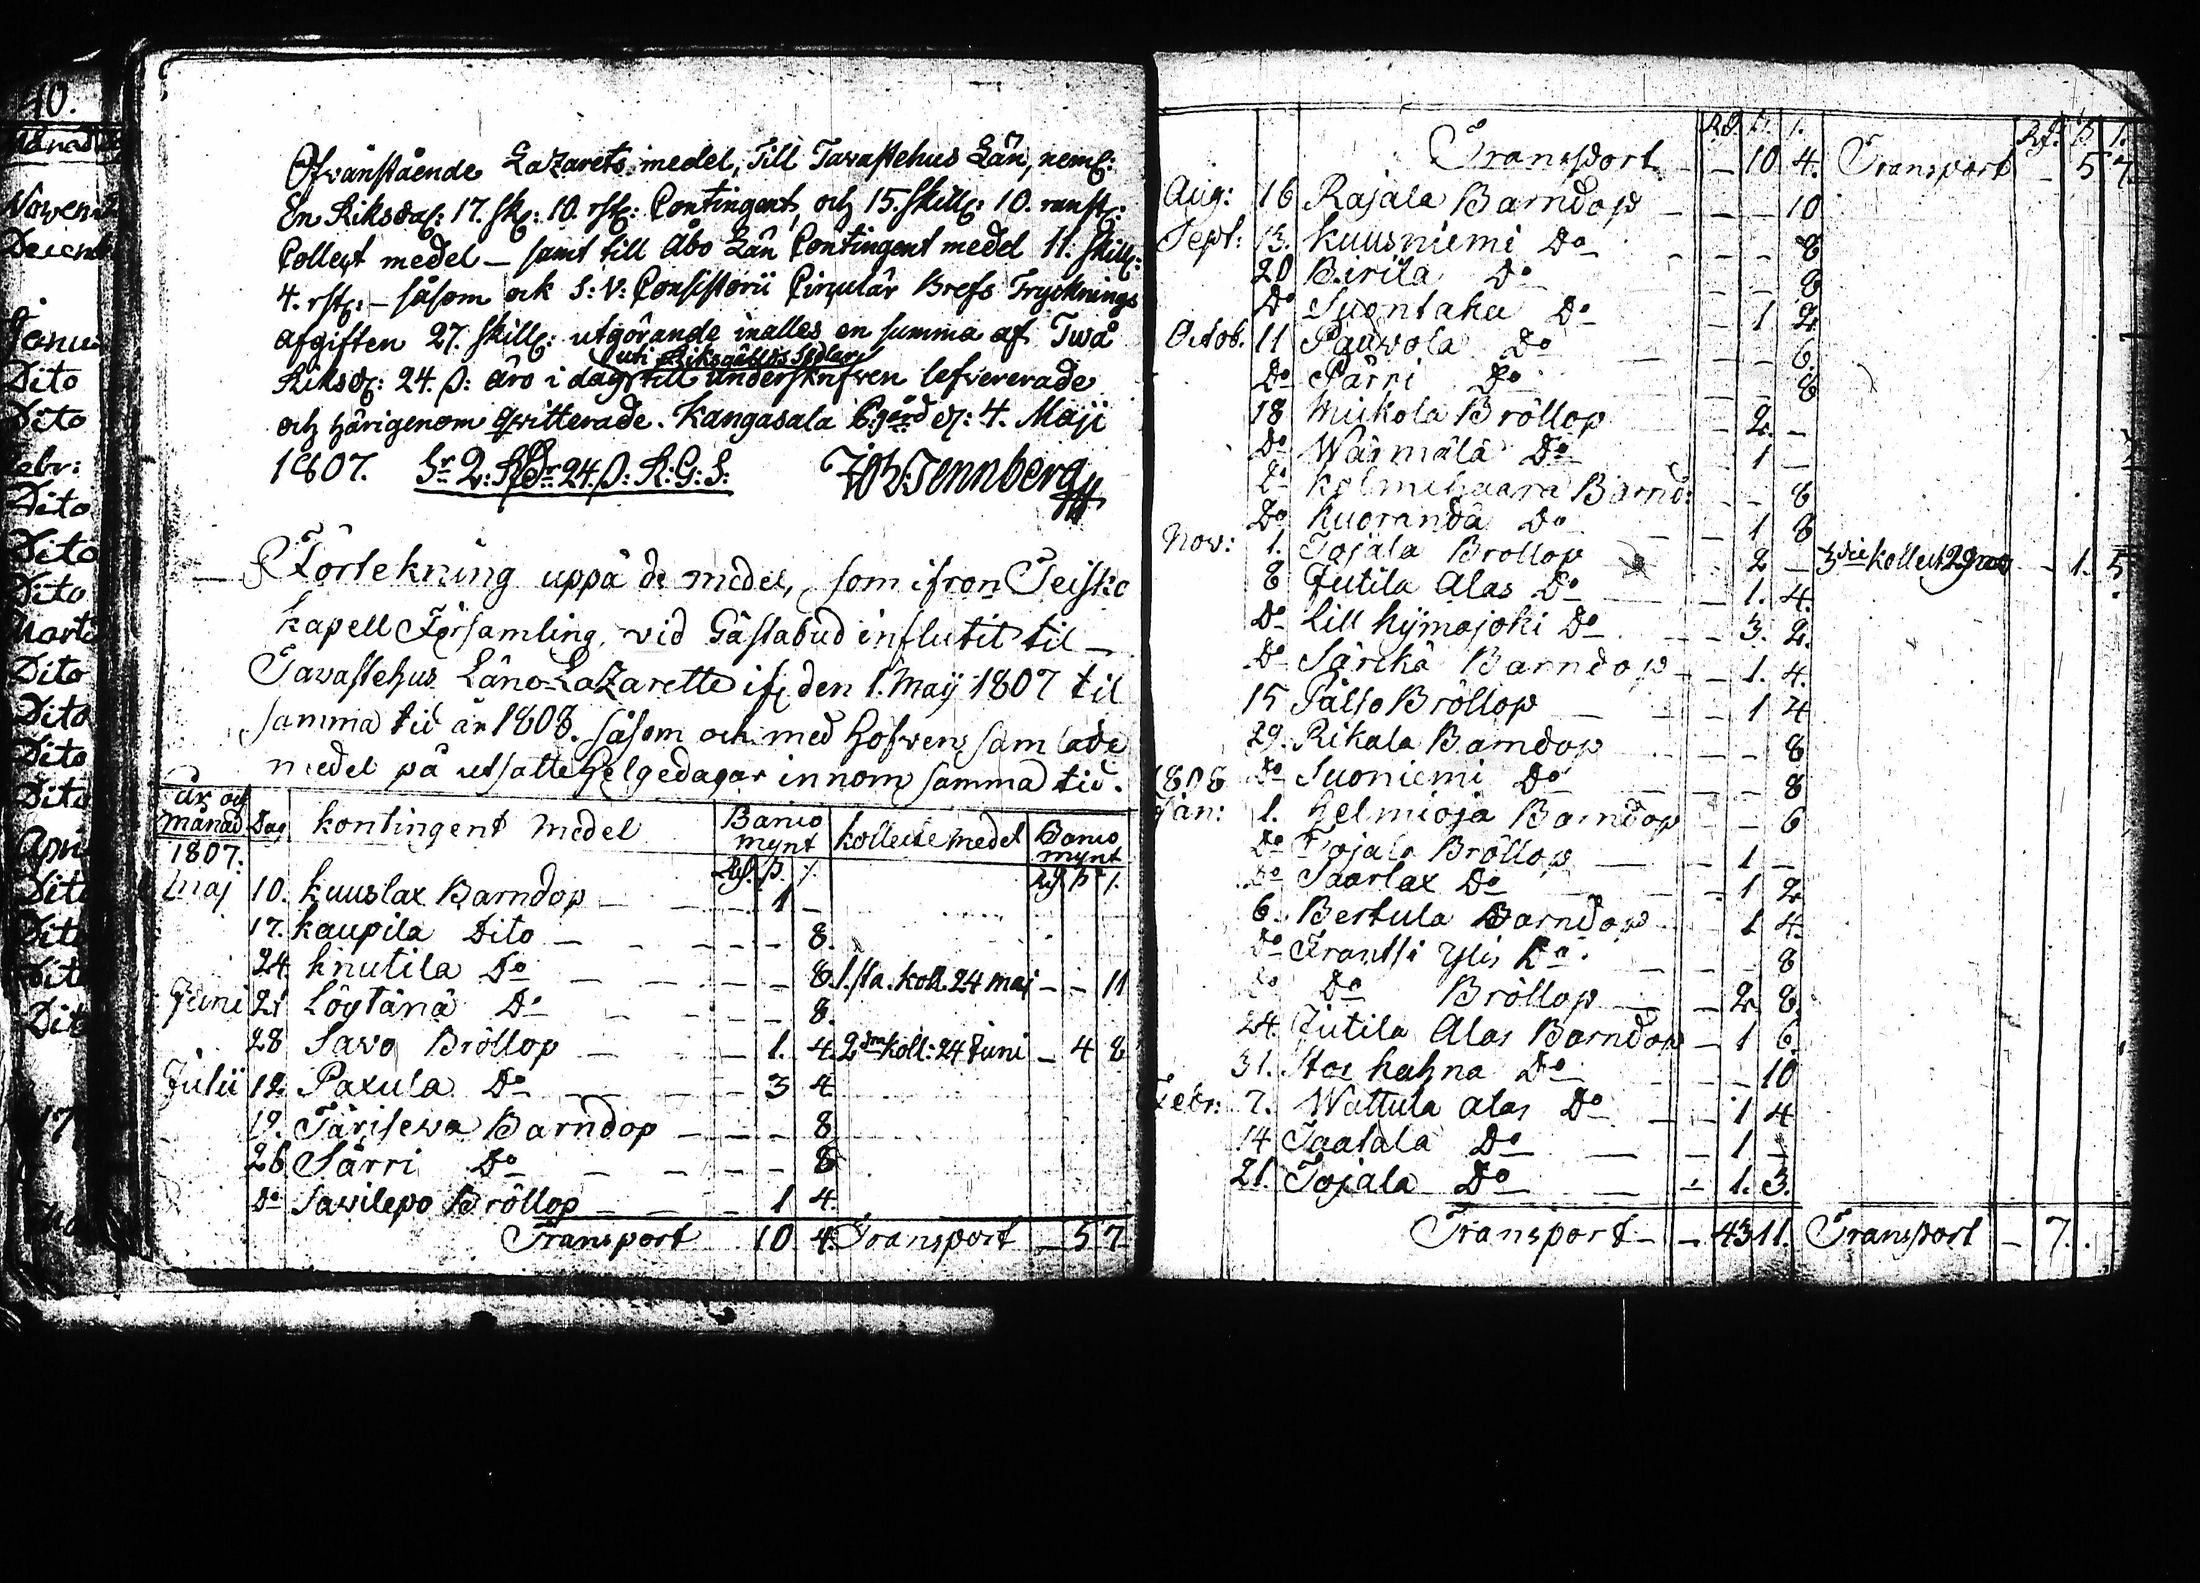 40.
Månad
Novem
Decemb
Janu
Dito
Dito
Febr:
Dito
Dito
Dito
Marti
Dito
Dito
Dito
Dito
Apri
Dito
Dito
Dito
Dito
Ofvanstående Lazarets medel, Till Tavastehus Län, neml:
En Riksdal: 17. sk: 10. rst: Contingent, och 15. skill: 10. runst:
Collect medel – samt till Åbo Län Contingent medel 11. skill:
4. rst: – såsom ock S: V: Consistorii Circulär Brefs Trycknings
afgiften 27. skill: utgörande inalles en summa af Twå
uti Riksgälds Sedlar
Riksd: 24. ß: äro i dag till underskrifven lefvererade
och härigenom qvitterade. Kangasala C:gård d: 4. Maji
1807. Sr 2. RDr 24. ß: R: G: S: Wennberg
Förtekning uppå de medel, som ifron Teisko
Kapell Församling, vid Gästabud influtit til
Tavastehus Läns Lazarette ifr den 1. Maij 1807 til
samma tid år 1808. såsom och med Hofven samlade
medel på utsatte Helgedagar innom samma tid.
år och månad Dag Kontingent Medel Banco mynt Kollecte Medel Banco mynt
1807. Rd. ß. r. Rd. ß. r.
Maj 10. Kuuslax Barndop – – 1 –
17. Kaupila Dito – – – – 8.
24. Knutila Do – – – – 8. 1.sta. Koll. 24 Maj – – 11
Juni 21 Löytänä Do – – – – 8.
28 Savo Bröllop – – 1. 4. 2dra Koll: 24 Juni – 4 8
Julii 12 Paxula Do – – – 3 4
19. Tärisewa Barndop – – – 8
26 Särri Do – – – – 8
Do Savilepo Bröllop – – – 1 4.
Transport 10 4. Transport – 5 7
Rd. ß. r. Rd. ß. r.
Transport – – 10 4. Transport – 5 7
Aug: 16 Rajala Barndop – – – 10
Sept: 13. Kuusniemi Do – – – 8
20 Birila Do – – 8
Do Suontaka Do – 1 2
Octob. 11 Pauvola Do – – – 6.
Do Särri Do – – 8
18 Muikola Bröllop – 2. –
Do Wärmälä Do – 1 –
Do Kolmihaara Barnd: – – 8
Do Kuoranda Do – 1 8
Nov: 1. Tojala Bröllop – 2 – 3die Kollect 29 nov – 1. 5
8 Jutila Alas Do – – 1. 4.
Do Lill Kijmajoki Do – – 3. 2.
Do Särckä Barndop – – 1. 4.
15 Pälso Bröllop – – 1 4
29. Rikala Barndop – – – 8
1808 Do Suoniemi Do – – – 8
Jan: 1. Helmioja Barndop – – 6
Do Tojala Bröllop – – 1 –
Do Saarlax Do – 1 2
6. Bertula Barndop – 1 4.
Do Frantsi Ylis Do – – – 8
Do Do Bröllop – – 2 8.
24. Jutila Alas Barndop – 1 6
31. Stor Kuhna Do – – – 10
Febr: 7. Wattula Alas Do – – 1 4
14 Taatala Do – – 1 –
21. Tojala Do – – 1. 3.
Transport – – 43 11. Transport – 7.